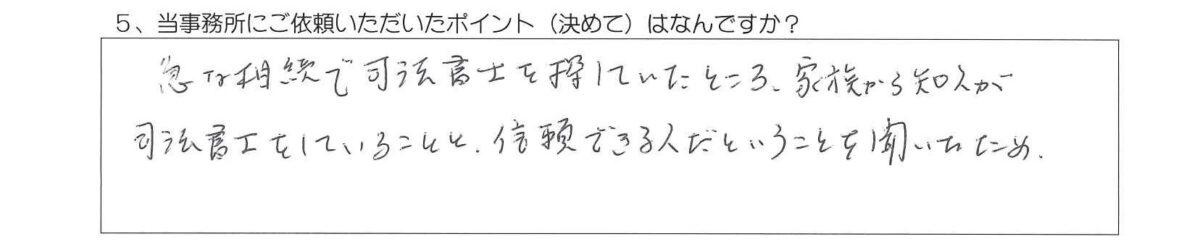 5、当事務所にご依頼いただいたポイント（決めて）はなんですか？
急な相続で司法書士を探していたところ、家族から知人が
司法書士をしていることと、信頼できる人だということを聞いたため.